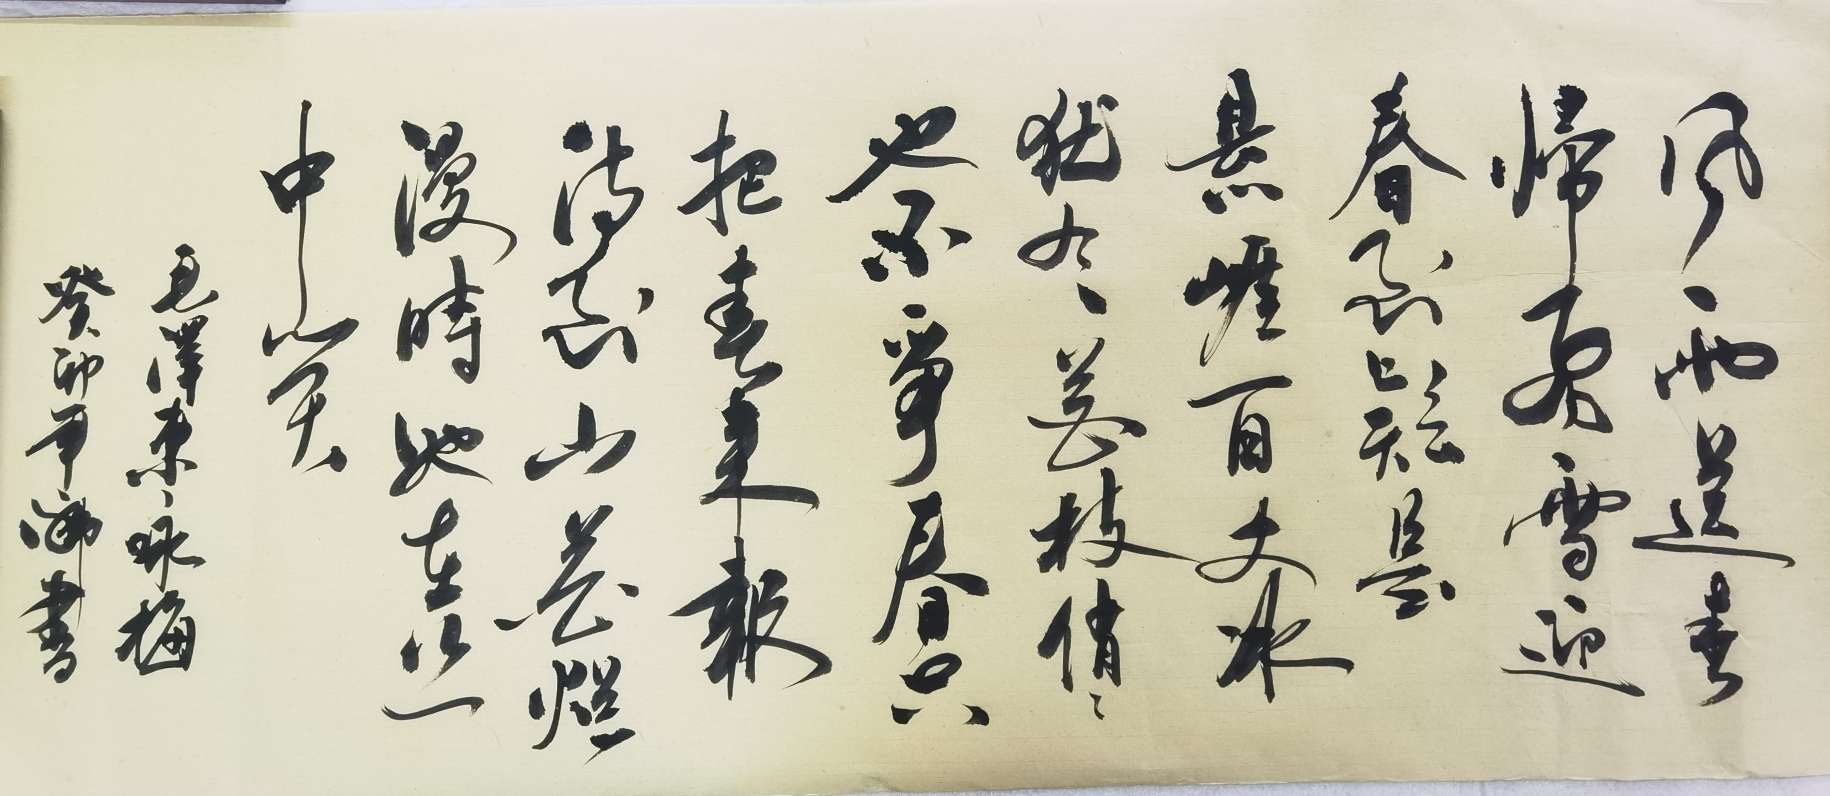 风雨送春
歸飛雪迎
春到是
悬崖百丈冰
犹有花枝俏々
也不爭春只
把春来報
待到山花烂
漫時她在丛
中笑
毛澤东咏梅
癸卯年書